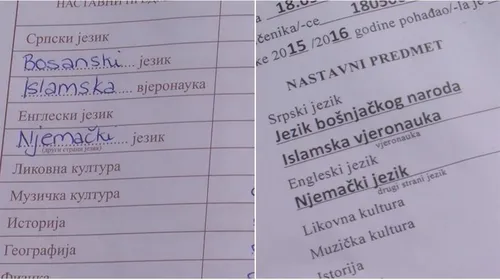 НАСТАВНИ
Српски језик
Bosanski језик
Islamska вјеронаука
Енглески језик
Njemački језик
(други страни језик)
Ликовна култура
Музичка култура
Историја
Географија
Физика
18.0
18050
čenika/-ce
ke 2015 /2016 godine pohađao/-la je
NASTAVNI PREDMET
Srpski jezik
Jezik bošnjačkog naroda
Islamska vjeronauka
vjeronauka
Engleski jezik
Njemački jezik
drugi strani jezik
Likovna kultura
Muzička kultura
Istorija